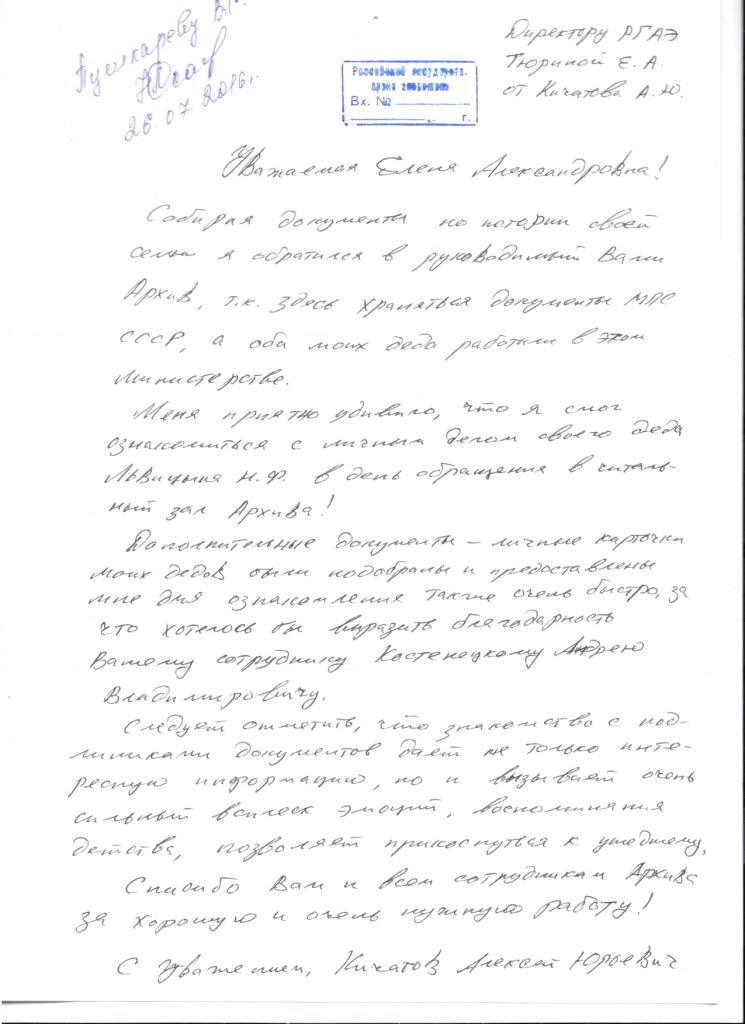 Пушкареву В.
26.07.2016г.
Российский государств.
архив экономики
Вх. №
г.
Директору РГАЭ
Тюриной Е. А.
от Кичатова А.Ю.
Уважаемая Елена Александровна!
Собирая документы по истории своей
семьи я обратился в руководимый Вами
Архив, т.к. здесь храняться документы МПС
СССР, а оба моих деда работали в этом
Министерстве.
Меня приятно удивило, что я смог
ознакомиться с личным делом своего деда
Львицына Н.Ф. в день обращения в читаль-
ный зал Архива!
Дополнительные документы – личные карточки
моих дедов были подобраны и предоставлены
мне для ознакомления также очень быстро, за
что хотелось бы выразить благодарность
Вашему сотруднику Костенецкому Андрею
Владимировичу.
Следует отметить, что знакомство с под-
линиками документов даёт не только инте-
ресную информацию, но и вызывает очень
сильный всплеск эмоций, воспоминания
детства, позволяет прикоснуться к ушедшему.
Спасибо Вам и всем сотрудникам Архива
за хорошую и очень нужную работу!
С Уважением, Кичатов Алексей Юрьевич